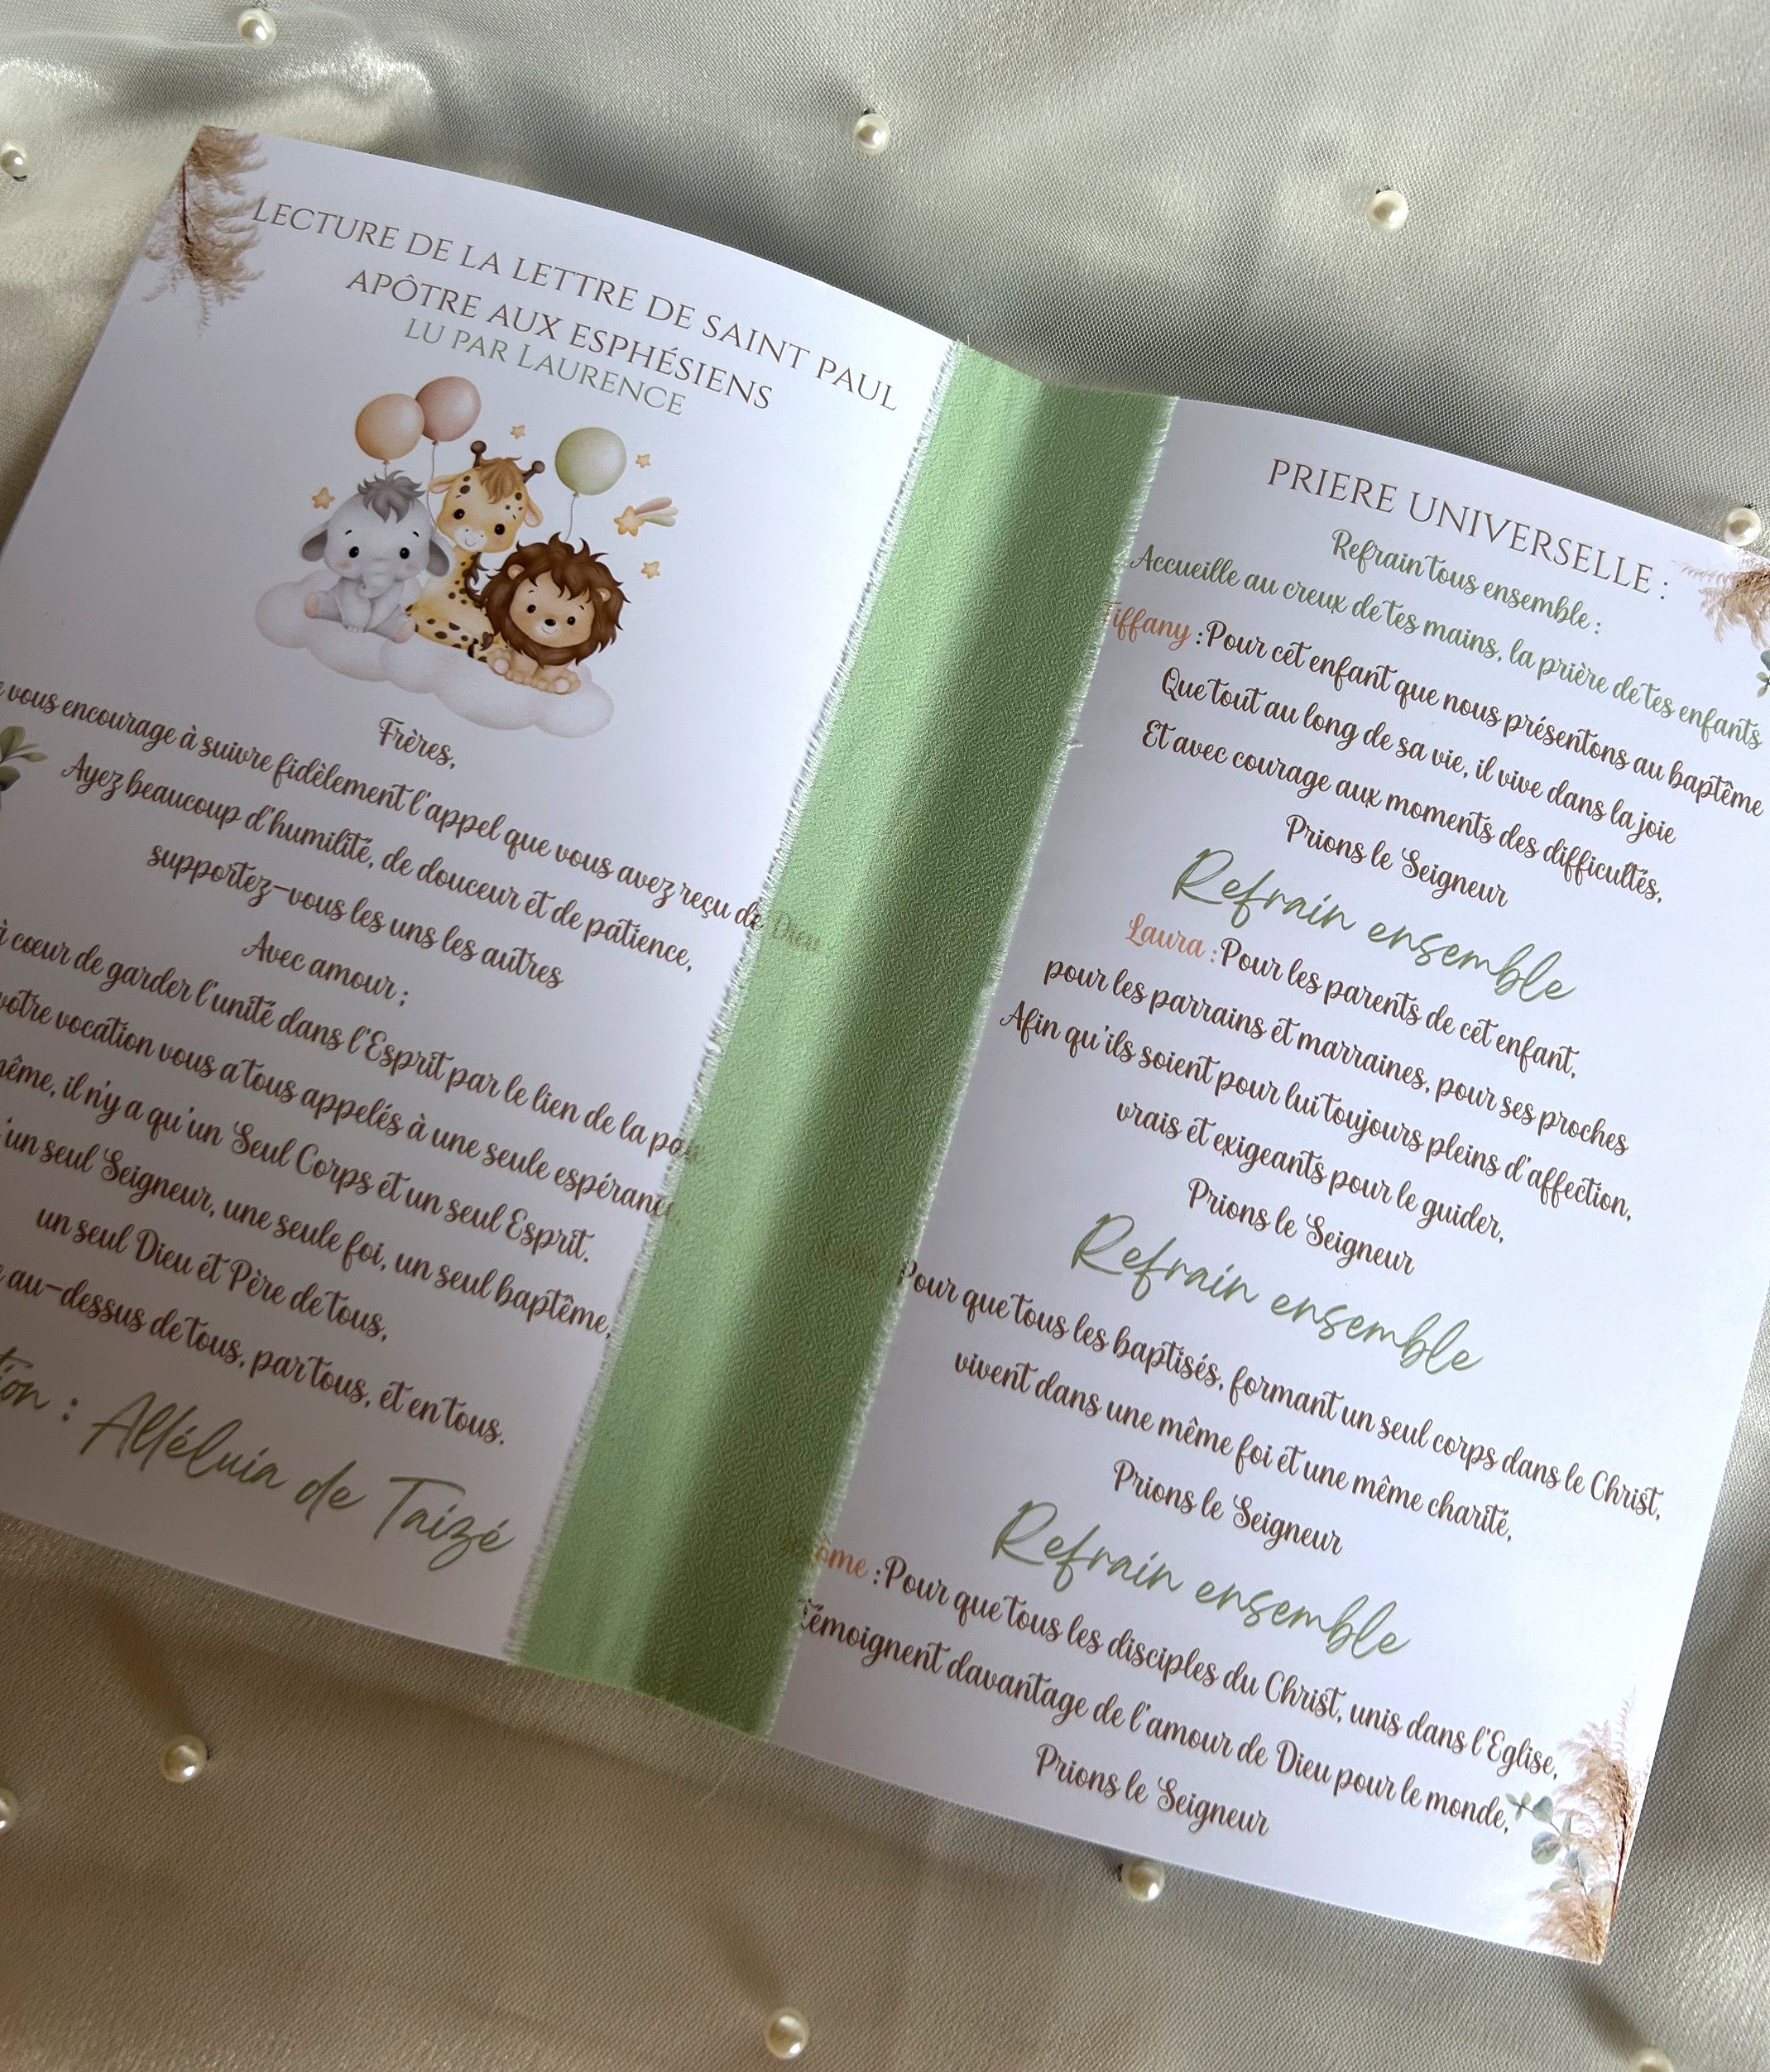 LECTURE DE LA LETTRE DE SAINT PAUL
APÔTRE AUX ESPHÉSIENS
LU PAR LAURENCE
Frères,
vous encourage à suivre fidèlement l'appel que vous avez reçu de Dieu
Ayez beaucoup d'humilité, de douceur et de patience,
supportez-vous les uns les autres
Avec amour ;
à cœur de garder l'unité dans l'Esprit par le lien de la
votre vocation vous a tous appelés à une seule espérance
même, il n'y a qu'un Seul Corps et un seul Esprit.
un seul Seigneur, une seule foi, un seul baptême,
un seul Dieu et Père de tous,
au-dessus de tous, par tous, et en tous.
: Alléluia de Taizé
PRIERE UNIVERSELLE :
Refrain tous ensemble :
Accueille au creux de tes mains, la prière de tes enfants
Tiffany : Pour cet enfant que nous présentons au baptême
Que tout au long de sa vie, il vive dans la joie
Et avec courage aux moments des difficultés,
Prions le Seigneur
Refrain ensemble
Laura : Pour les parents de cet enfant,
pour les parrains et marraines, pour ses proches
Afin qu'ils soient pour lui toujours pleins d'affection,
vrais et exigeants pour le guider,
Prions le Seigneur
Refrain ensemble
Pour que tous les baptisés, formant un seul corps dans le Christ,
vivent dans une même foi et une même charité,
Prions le Seigneur
Refrain ensemble
: Pour que tous les disciples du Christ, unis dans l'Eglise,
Témoignent davantage de l'amour de Dieu pour le monde,
Prions le Seigneur